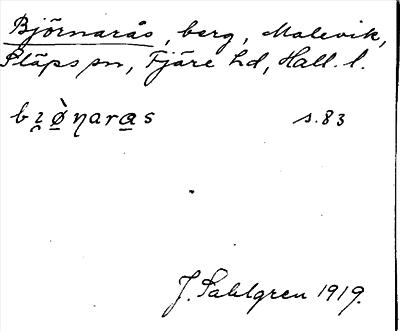 Björnarås, berg, Malevik,
Släps sn, Fjäre hd, Hall. l.
bɪ̯ø̀ŋara̲s s. 83
J. Sahlgren 1919.